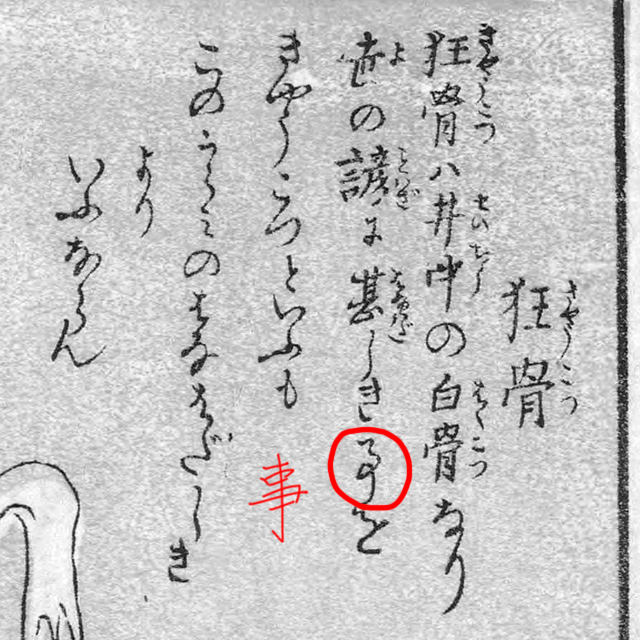 狂骨
きやうこつ
狂骨ハ井中の白骨なり
きやうこつ
せいちう
はくこつ
世の諺に甚しき事を
よ
ことわざ
はなはだ
きやうこつといふも
このうらミのはなはだしき
より
いふならん
事